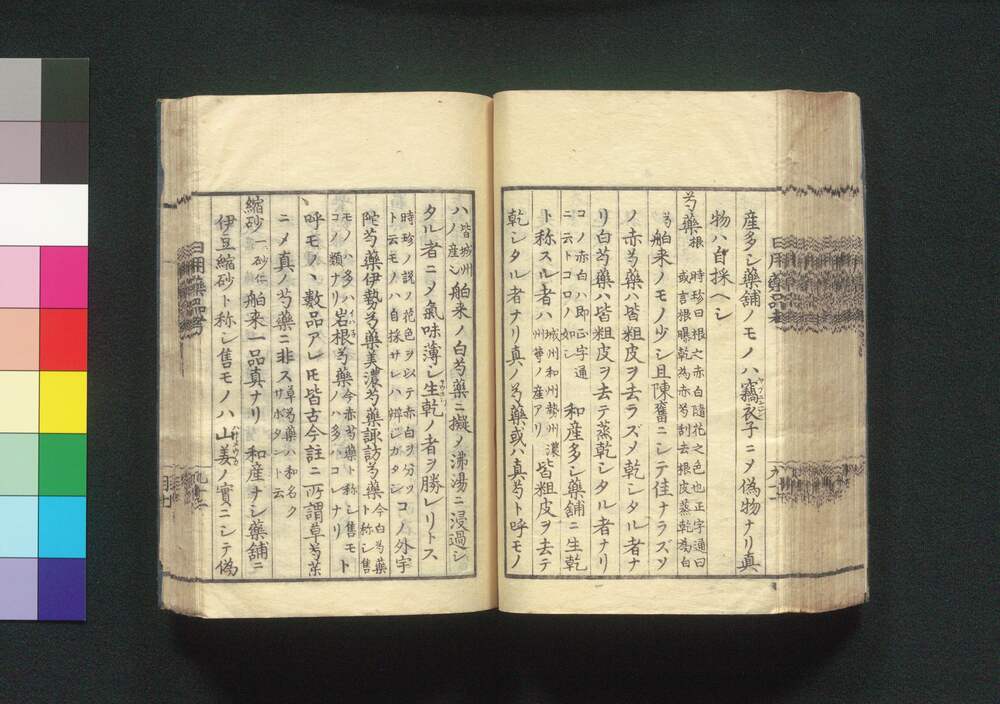 産多シ藥舗ノモノハ竊衣子ニメ偽物ナリ真
物ハ自採ヘシ
芍藥根 時珍曰根之赤白隨花之色也正字通曰
或言根曝乾為赤芍刮去根皮蒸乾為白
芍 舶来ノモノ少シ且陳舊ニシテ佳ナラズソ
ノ赤芍藥ハ皆粗皮ヲ去ラズメ乾シタル者ナ
リ白芍藥ハ皆粗皮ヲ去テ蒸乾シタル者ナリ
コノ赤白ハ即正字通
ニ云トコロノ如シ 和産多シ藥舗ニ生乾
ト称スル者ハ 城州和州勢州濃
州等ノ産アリ 皆粗皮ヲ去テ
乾シタル者ナリ真ノ芍藥或ハ真芍ト呼モノ
ハ 皆城州
ノ産シ 舶来ノ白芍藥ニ擬メ沸湯ニ浸過シ
タル者ニメ氣味薄シ生乾ノ者ヲ勝レリトス
時珍ノ説ノ花色ヲ以テ赤白ヲ分ツ
ト云モノハ自採サレハ辨シガタシ コノ外宇
陀芍藥伊勢芍藥美濃芍藥諏訪芍藥 今白芍藥
ト称シ售
モノハ多ハ
コノ類ナリ 岩根芍藥 今赤芍藥ト称シ售モ
ノハ多ハコレナリ ト
呼モノヽ數品アレ𪜈皆古今註ニ所謂草芍藥
ニメ真ノ芍藥ニ非ス 草芍藥ハ和名ク
サボタント云
縮砂 一名
砂仁 舶来一品真ナリ和産ナシ藥舗ニ
伊豆縮砂ト称シ售モノハ山姜ノ實ニシテ偽
日用藥品考